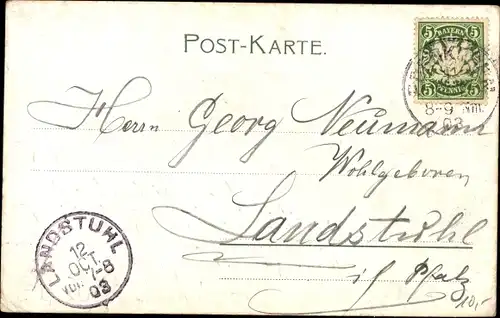 POST-KARTE.
5 BAYERN 5
5 PFENNIG 5
8-9 NM.
03
Herrn Georg Neumann
Wohlgeboren
Landstuhl
i/ Pfalz
LANDSTUHL
12
OCT.
VOR. 7-8
03
10,-